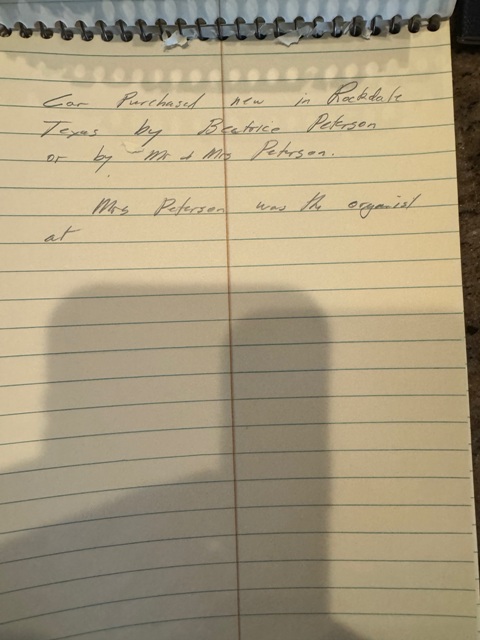 Car Purchased new in Rockdale
Texas by Beatrice Peterson
or by Mr & Mrs Peterson.
Mrs Peterson was the organist
at